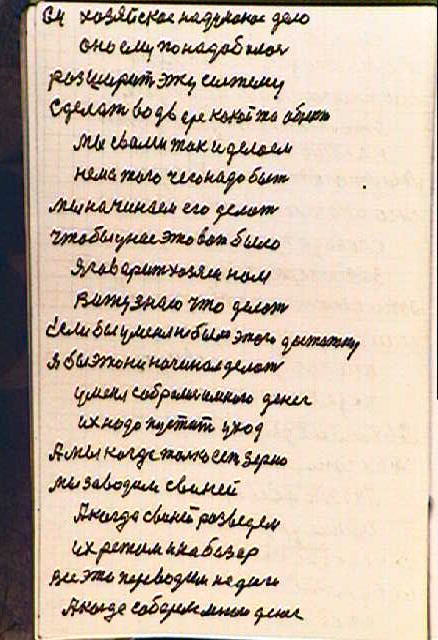 ему хозяйское надуманое дело
оно ему понадобилося
розширит эту систему
сделат во дворе какой то обект
мы свами так и делаем
нема того чего надо быт
мы начинаем его делат
чтобы у нас это вот было
я говарит хозяен ном
вижу знаю что делат
если бы у меня небыло этого достатку
я бы этого ни начинал делат
у меня собралос много денег
их надо пустит уход
А мы когда толко ест зерно
мы заводим свиней
А когда свиней розведем
их режим и на базар
все это переводим на дены
А когда собралос много денег